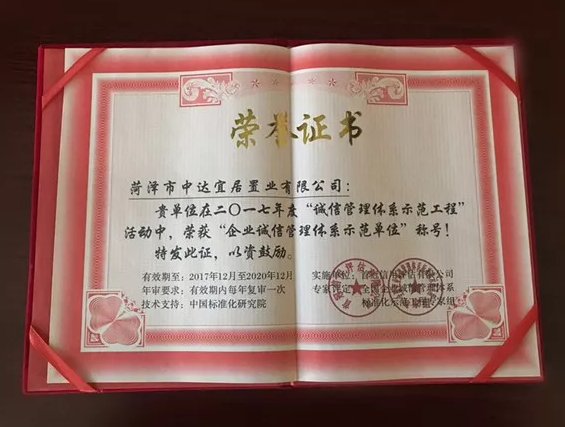 荣誉证书
菏泽市中达宜居置业有限公司：
贵单位在二〇一七年度“诚信管理体系示范工程”
活动中，荣获“企业诚信管理体系示范单位”称号！
特发此证，以资鼓励。
有效期至：2017年12月至2020年12月
年审要求：有效期内每年复审一次
技术支持：中国标准化研究院
实施单位：信用评估有限公司
专家评定：全国企业诚信管理体系
标准化示范工程专家组